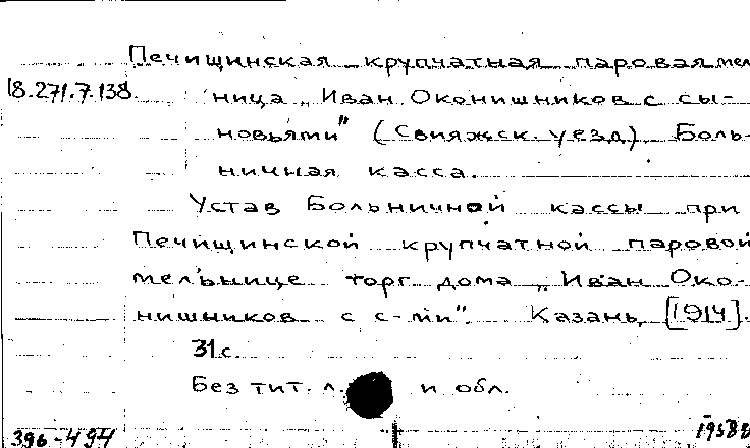 Печищинская крупчатная паровая мел
18.271.7.138. ница „Иван Оконишников с сы-
новьями" (Свияжск. уезд). Боль-
ничная касса.
Устав Больничной кассы при
Печищинской крупчатной паровой
мельнице торг. дома „Иван Око-
нишников с с-ми". Казань, [1914].
31 с.
Без тит. л. и обл.
396-494